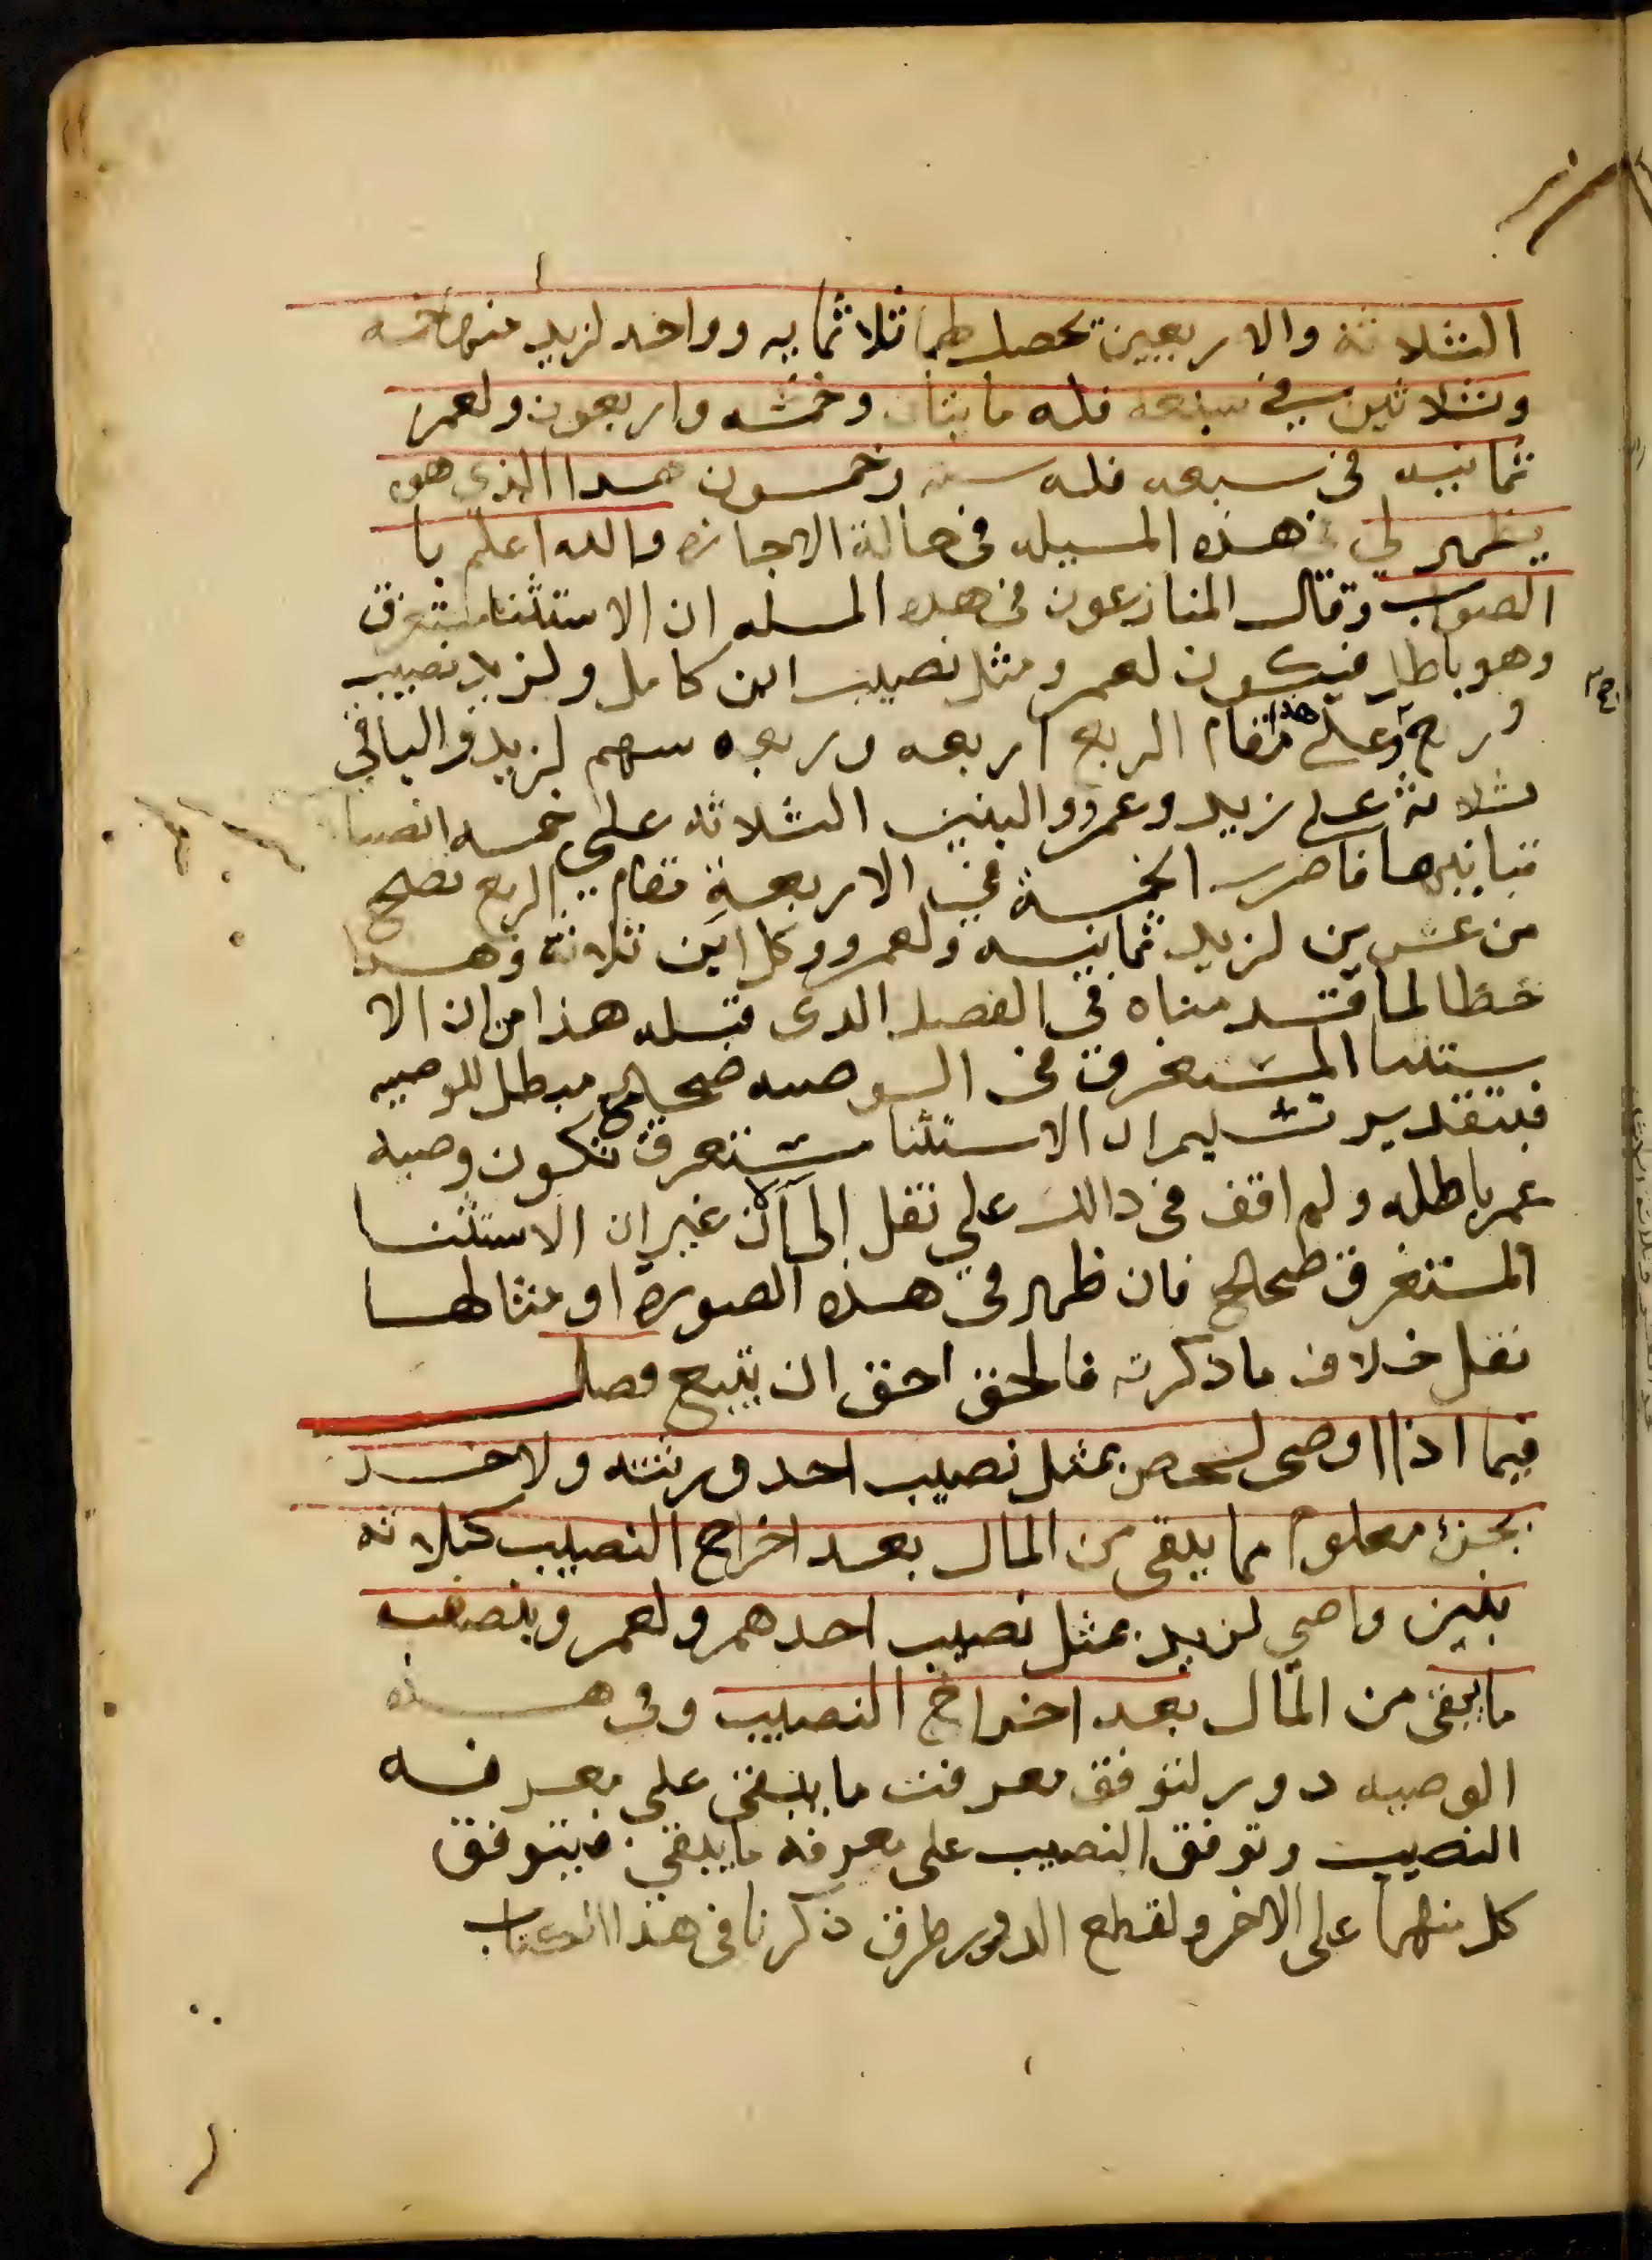 الثلاثة والاربعين تحصل لهما ثلاثمايه وواحد لزيد منها خمسه
وثلاثين في سبعه فله مايتان وخمسه واربعون ولعمر
ثمانيه في سبعه فله سته وخمسون هذا الذي هو
يظهر لي في هذه المسيله في حالة الاجازه والله اعلم با
الصواب وقال المنازعون في هده المسله ان الاستثنا مستغرق
وهو باطل فيكون لعمر ومثل نصيب ابن كامل ولزيد نصيب
وربع وعلى هذا مقام الربع اربعه وربعه سهم لزيد والباقي
ثلاثة على زيد وعمرو والبنين الثلاثه على خمسه انصبا
تباينها فاضرب الخمسة في الاربعة مقام الربع تصح
من عشرين لزيد ثمانيه ولعمرو وكل ابن ثلاثة وهذا
خطا لما قدمناه في الفصل الدى قبله هذا من ان الا
ستثنا المستغرق في الوصيه صحيح مبطل للوصيه
فبتقدير تسليم ان الاستثنا مستغرق تكون وصيه
عمر باطله ولم اقف في دالك علي نقل الي الان غير ان الاستثنا
المستغرق صحيح فان ظهر في هذه الصورة او مثالها
نقل خلاف ما ذكرته فالحق احق ان يتبع فصل
فيما اذا اوصى لشخص بمثل نصيب احد ورثته ولاخر
بجزء معلوم مما يبقى من المال بعد اخراج النصيب كثلاثه
بنين واصي لزيد بمثل نصيب احدهم ولعمر وبنصف
ما يبقى من المال بعد اخراج النصيب وفي هذه
الوصيه دور لتوقف معرفت ما يبقى علي معرفه
النصيب وتوقف النصيب على معرفه ما يبقي فيتوقف
كل منهما على الاخر ولقطع الدور طرق ذكرنا في هذا الكتاب